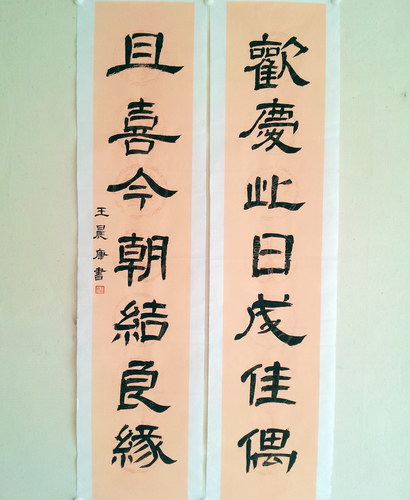 歡慶此日成佳偶
且喜今朝結良緣
王晨康書